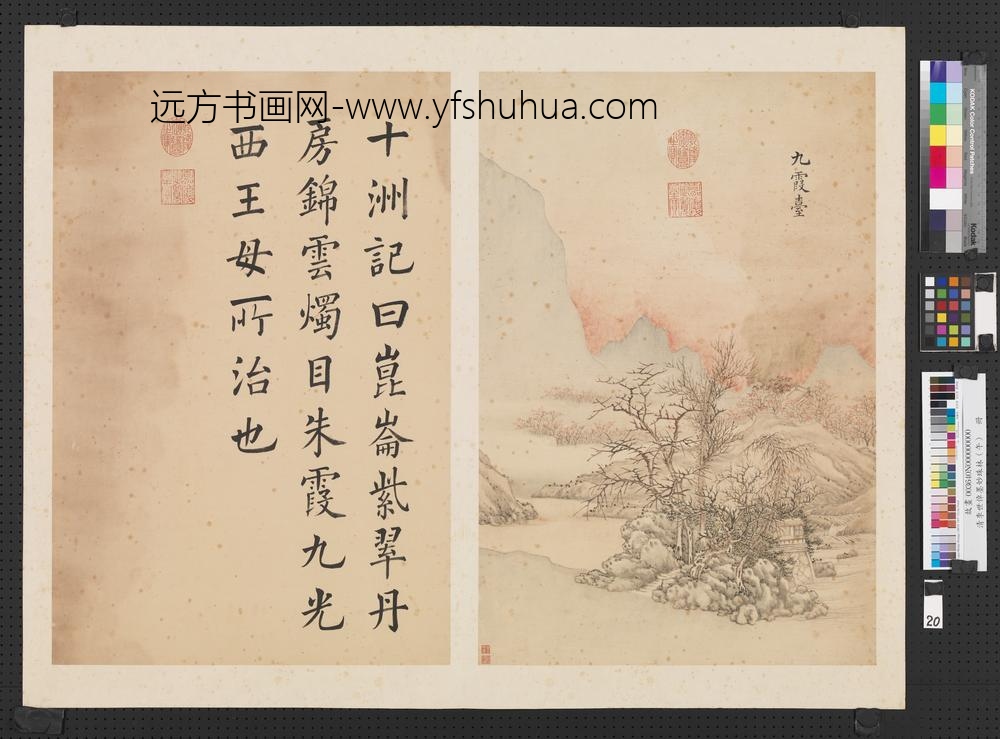 远方书画网-www.yfshuhua.com
九霞臺
十洲記曰崑崙紫翠丹
房錦雲燭目朱霞九光
西王母所治也
KODAK Color Control Patches
Kodak
20